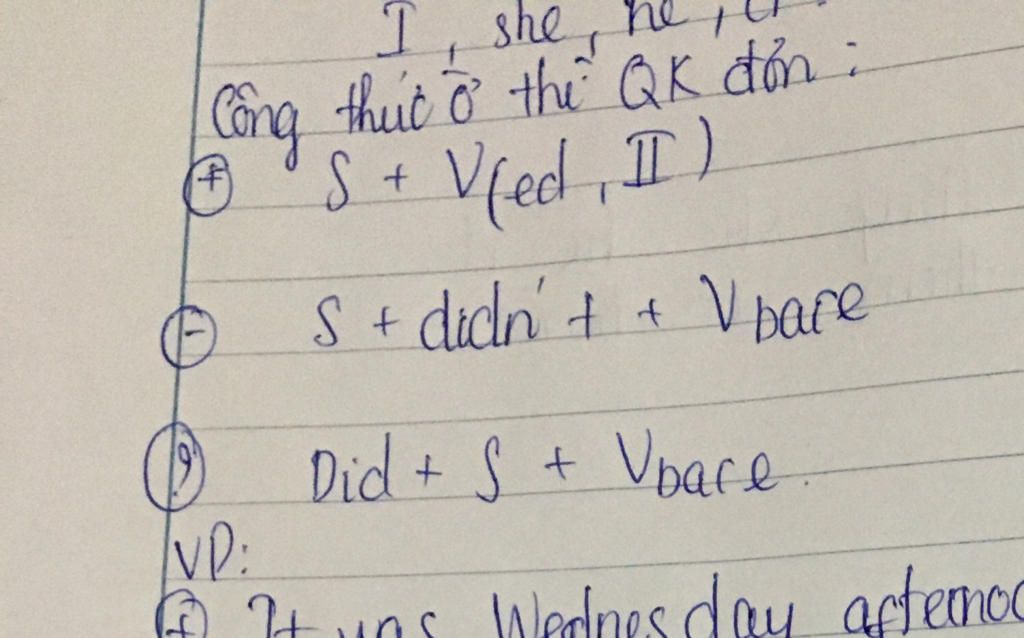 I, she, he,
Công thức ở thì QK đơn:
(+) S + V(ed, II)
(-) S + didn't + Vbare
(?) Did + S + Vbare.
VD:
(+) It was Wednesday